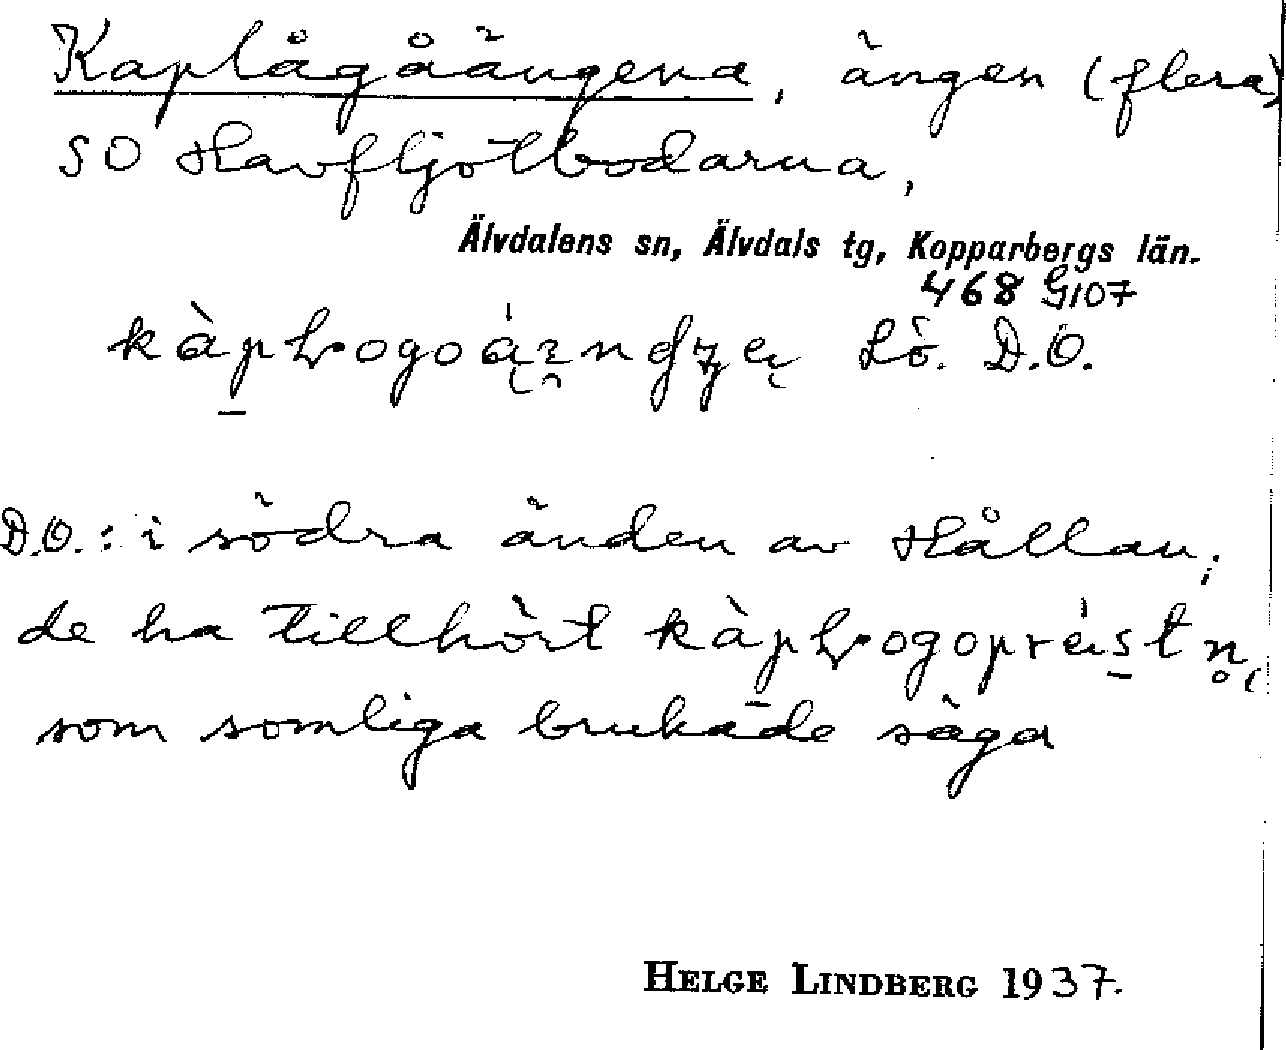 Kaplågåängena, ängen (flera)
SO Havfljotbodarna,
Älvdalens sn, Älvdals tg, Kopparbergs län.
468 G107
Lö. D.O.
D.O.: i södra änden av Hållan;
de ha tillhört
som somliga brukade säga
HELGE LINDBERG 1937.